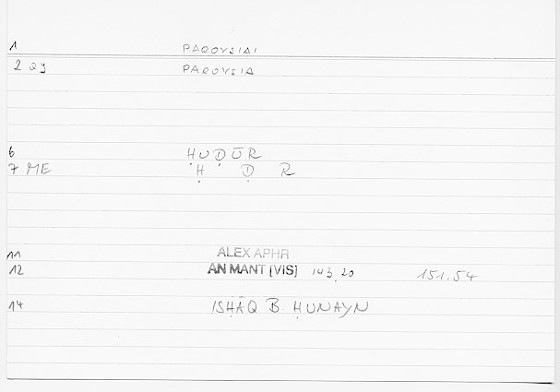 1 PAROYSIAI
2 29 PAROYSIA
6 ḤUḌŪR
7 ME Ḥ Ḍ R
11 ALEX APHR
12 AN MANT [VIS] 143,20 151.54
14 ISḤĀQ B. ḤUNAYN